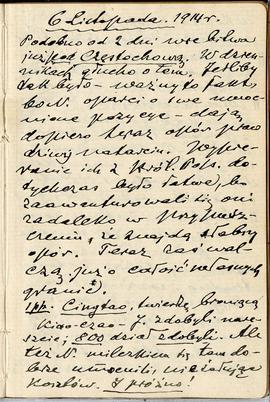 6 Listopada. 1914 r.
Podobno od 2 dni wre bitwa
już pod Częstochową. W dzien-
nikach głucho o tem. Jeśliby
tak było - ważny to fakt,
bo N. oparci o swe umoc-
nione pozycye - dają
dopiero teraz opór praw-
dziwy natarciu. Wypie-
ranie ich z Król. Pols. do-
tychczas było łatwe, bo
zaawenturowali się oni
zadaleko w przypusz-
czeniu, że znajdą słabszy
opór. Teraz zaś wal-
czą już o całość własnych
granic.
Jap. Cingtao, twierdzę broniącą
Kiao-czao - J. zdobyli nare-
szcie; 800 dział zdobyli. Ale
też N. milczkiem się tam do-
brze umocnili, nie żałując
kosztów. I próżno!